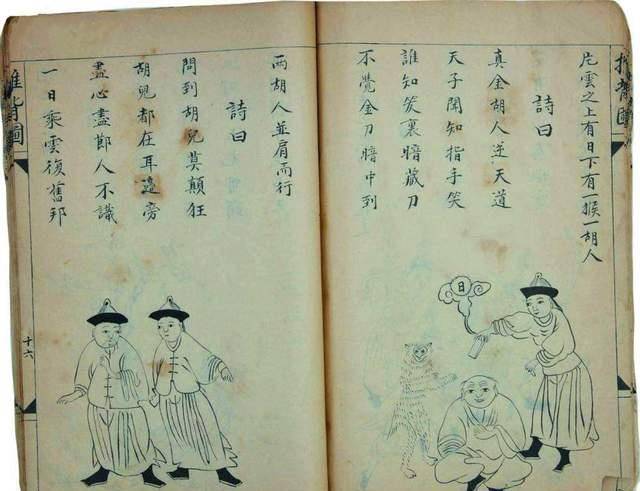 推背圖
片雲之上有日下有一猴一胡人
詩曰
真金胡人逆天道
天子聞知指手笑
誰知笑裏暗藏刀
不覺金刀暗中到
日
兩胡人並肩而行
詩曰
問到胡兒莫顛狂
胡兒都在耳邊旁
盡心盡節人不識
一日乘雲復舊邦
推背圖
十六